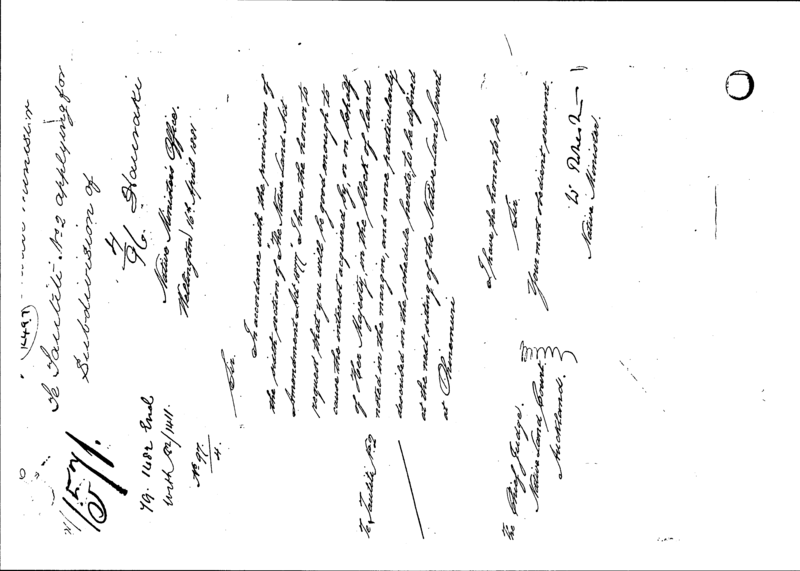 1497
Te Tautiti No 2 applying for
Subdivision of
4/96 Hauraki
79. 1482 Encl
with 82/1411
No 97/4.
Native Minister's Office,
Wellington 16th April 1881
Sir.
In accordance with the provisions of
the sixth portion of "The Native Land Act
Amendment Act 1877" I have the honor to
request that you will be good enough to
cause the interest acquired by, or on behalf
of Her Majesty, in the block of land
noted in the margin, and more particularly
described in the schedule hereto, to be defined
at the next sitting of the Native Land Court
at Ohinemuri
Te Tautiti No 2
I have the honor to be
Sir.
Your most obedient servant.
Native Minister.
The Chief Judge.
Native Land Court
Auckland.